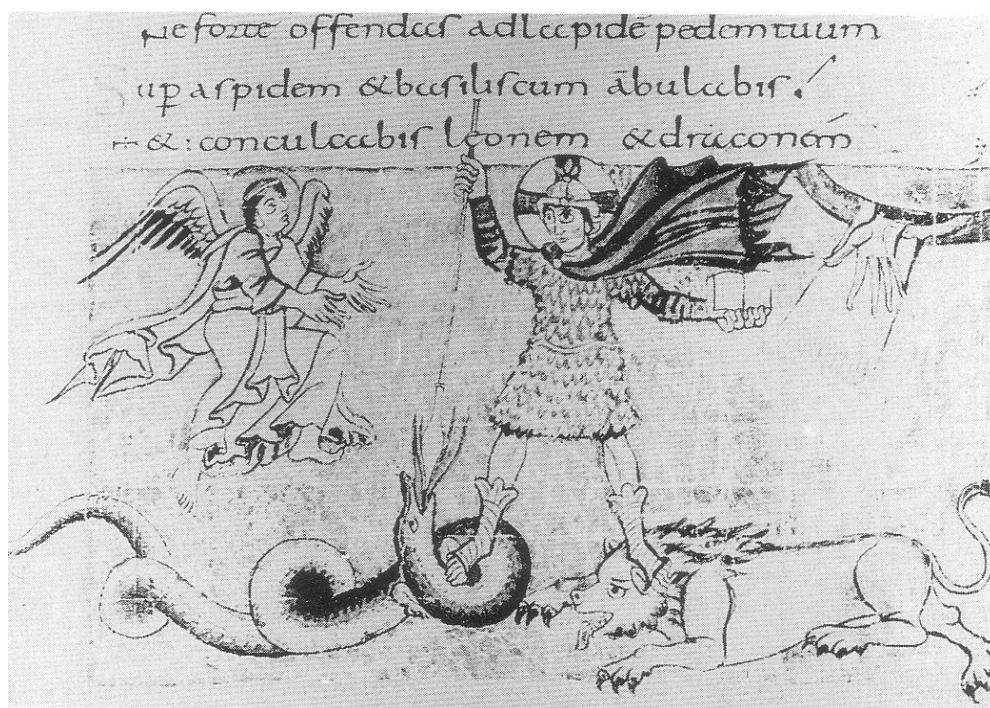 Ne forte offendas adlapidē pedemtuum
up̱ aspidem &basiliscum ābulabis ./
÷ &: conculcabis leonem &draconem